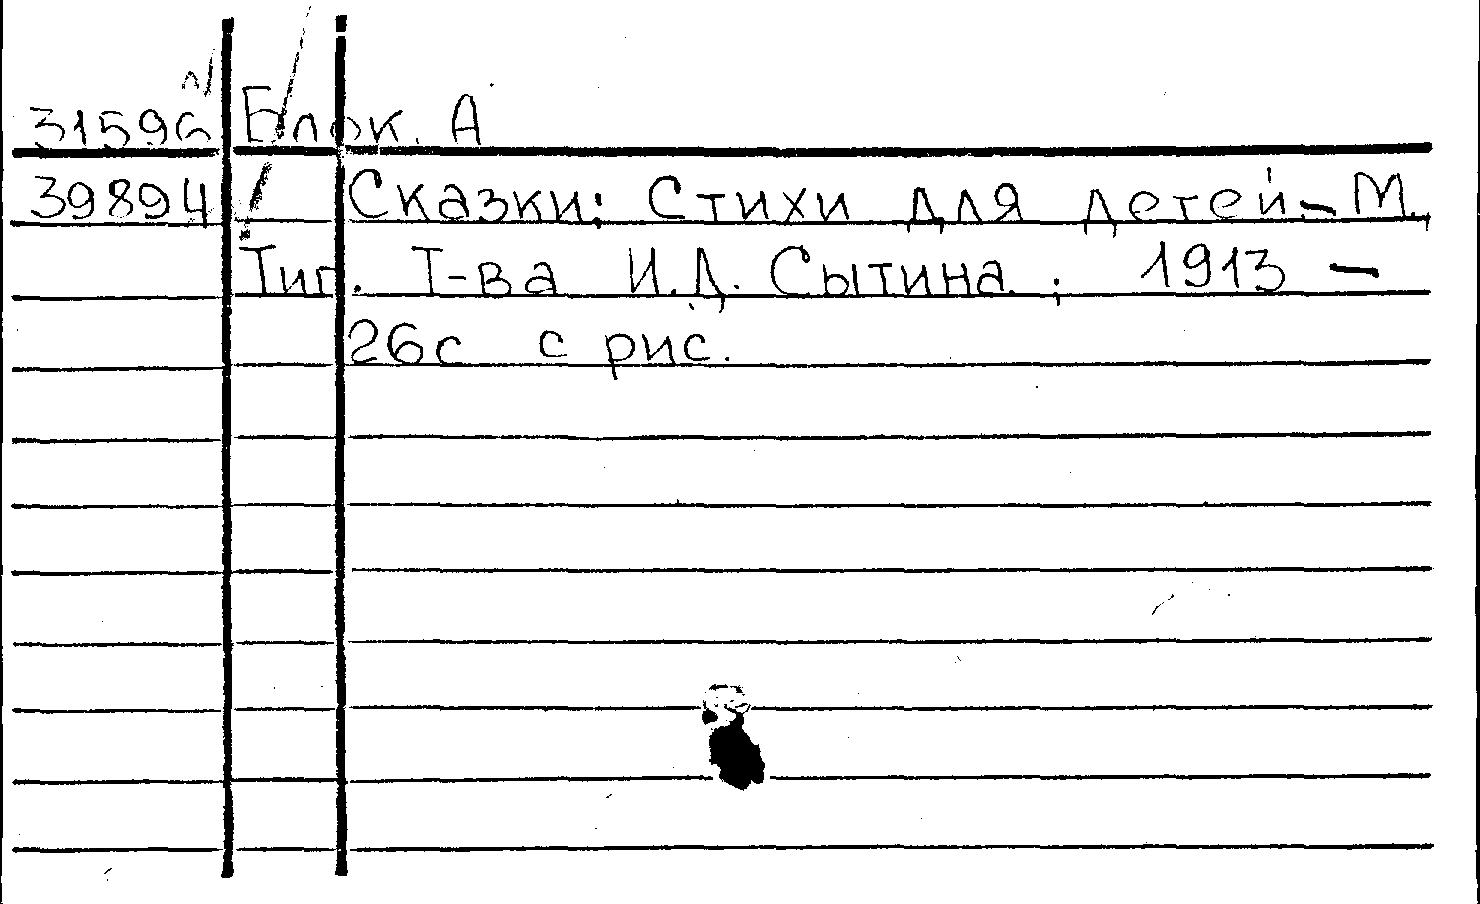 31596 Блок. А
39894 Сказки: Стихи для детей – М.,
Тип. Т-ва И.Д. Сытина. ; 1913 –
26с с рис.